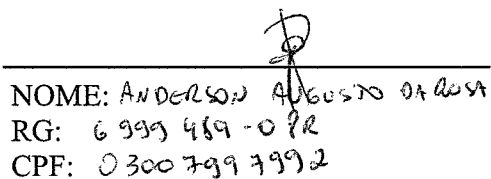 NOME: ANDERSON AUGUSTO DA ROSA
RG: 6 999 459-0 PR
CPF: 0300 799 799 2